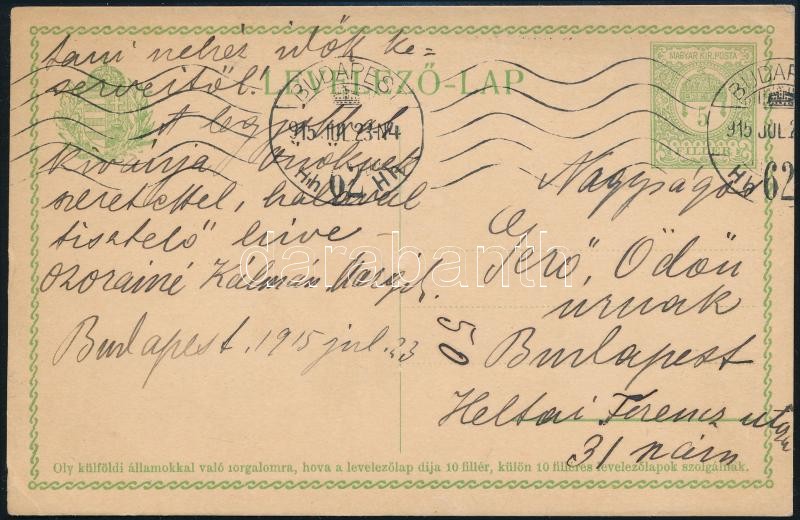 tani nehéz idők ke-
serveitől!
LEVELEZŐ-LAP
A legjobbakat
kívánja Önöknek
szeretettel, hálával
tisztelő híve –
Ozorainé Kálmán Margit.
Budapest. 1915 jul. 23
MAGYAR KIR. POSTA
5
FILLÉR
BUDAPEST
915 JUL 23-N4
62
BUDAPEST
915 JUL 2
62
Nagyságos
Gerő Ödön
urnak
50
Budapest
Heltai Ferencz utcza
31 szám
darabanth
Oly külföldi államokkal való forgalomra, hova a levelezőlap dija 10 fillér, külön 10 filléres levelezőlapok szolgálnak.